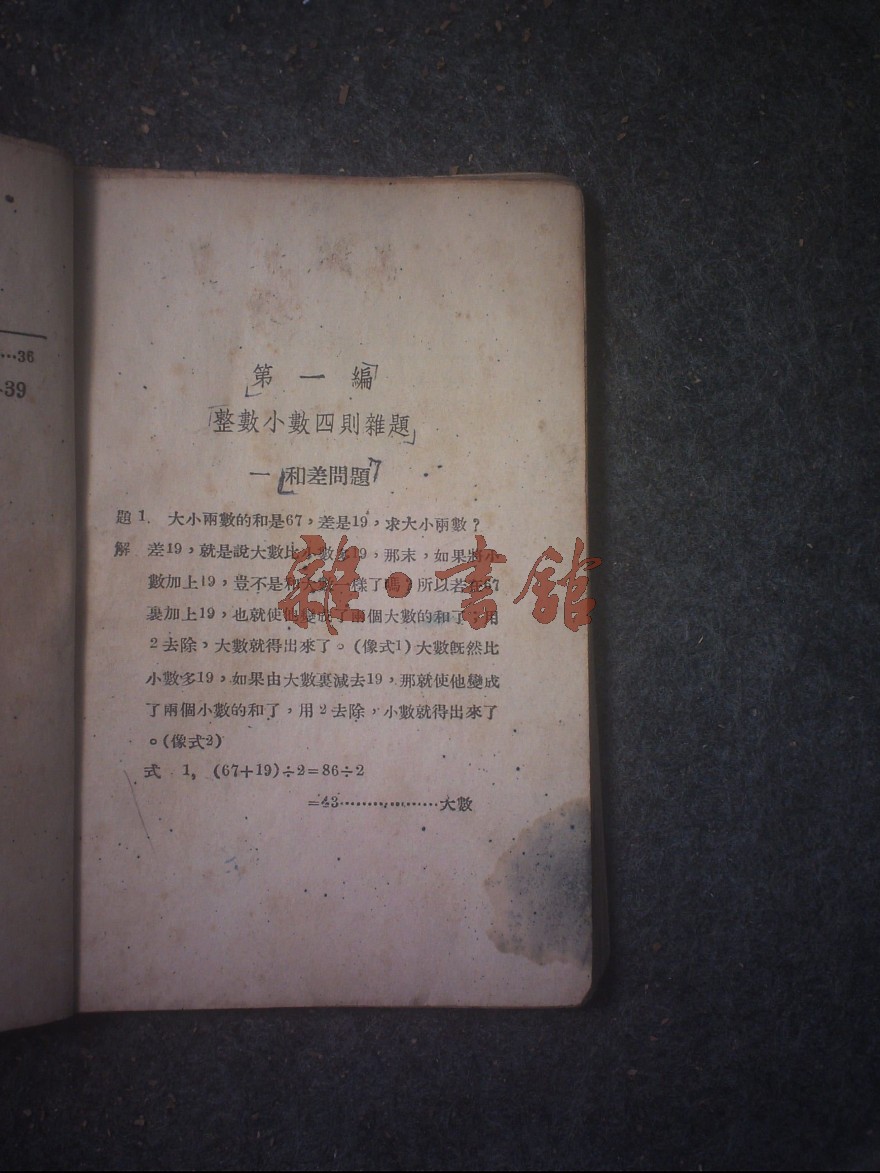 …36
39
第一編
整數小數四則雜題
一 和差問題
題1. 大小兩數的和是67,差是19,求大小兩數?
解 差19,就是說大數比小數多19,那末,如果將小
數加上19,豈不是和大數一樣了嗎?所以若在67
裏加上19,也就使他變成了兩個大數的和了,用
2去除,大數就得出來了。(像式1)大數既然比
小數多19,如果由大數裏減去19,那就使他變成
了兩個小數的和了,用2去除,小數就得出來了
。(像式2)
式 1, (67+19)÷2=86÷2
=43………………大數
雜·書館